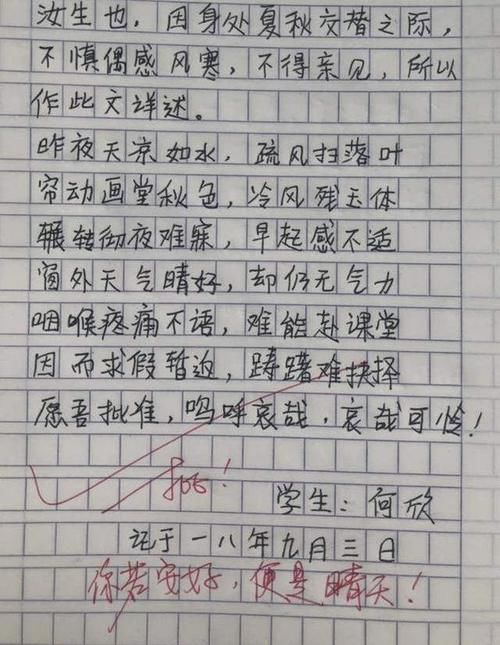 汝生也，因身处夏秋交替之际，
不慎偶感风寒，不得亲见，所以
作此文详述。
昨夜天凉如水，疏风扫落叶
帘动画堂秋色，冷风残玉体
辗转彻夜难寐，早起感不适
窗外天气晴好，却仍无气力
咽喉疼痛不语，难能赴课堂
因而求假暂迫，踌躇难抉择
愿吾批准，呜呼哀哉，哀哉可怜！
批！
学生：何欣
记于一八年九月三日
你若安好，便是晴天！